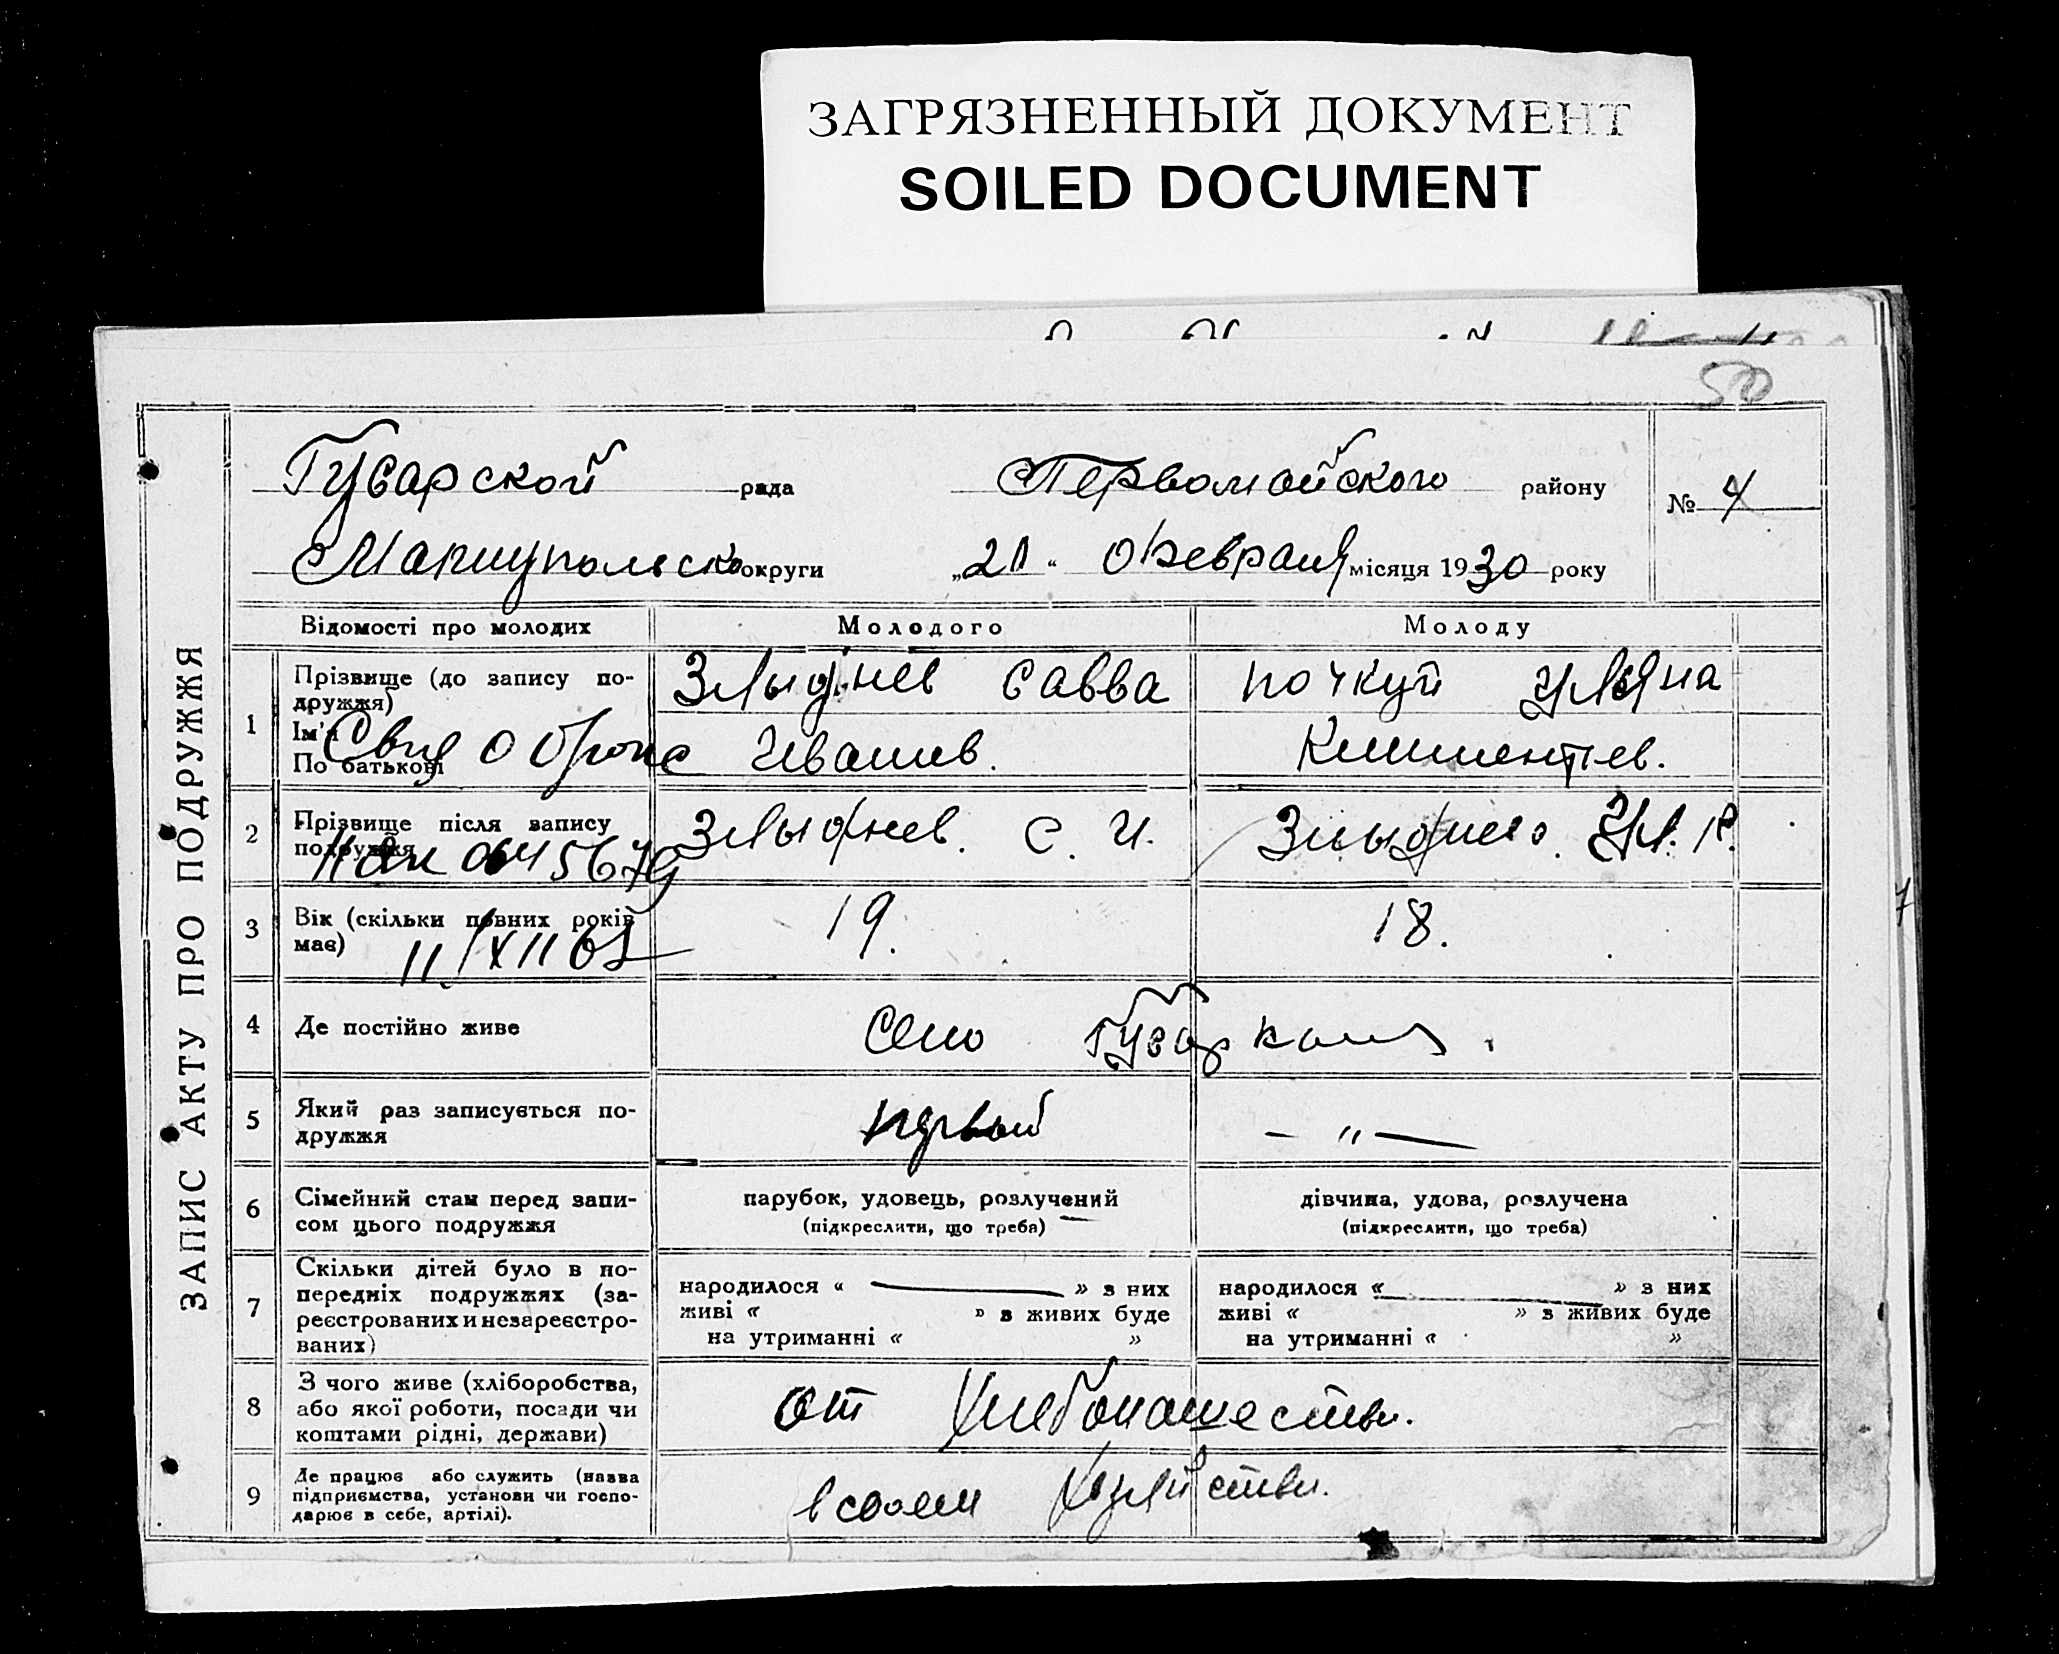 ЗАГРЯЗНЕННЫЙ ДОКУМЕНТ
SOILED DOCUMENT
50
ЗАПИС АКТУ ПРО ПОДРУЖЖЯ
Гусарской рада Первомайского району № 4
Мариупольско округи „21“ Февраля місяця 1930 року
Відомості про молодих Молодого Молоду
1 Прізвище (до запису по-
дружжя)
Ім'я
По батькові
Злыднев Савва Почкуй Ульяна
Ивание. Климентьев.
Свид о браке
2 Прізвище після запису
подружжя
Злыднев. С. И. Злыднева. Ул. К.
11/XII 62
3 Вік (скільки повних років
має)
19. 18.
4 Де постійно живе Село
5 Який раз записується по-
дружжя
первый — " —
6 Сімейний стан перед запи-
сом цього подружжя
парубок, удовець, розлучений дівчина, удова, розлучена
(підкреслити, що треба) (підкреслити, що треба)
7 Скільки дітей було в по-
передніх подружжях (за-
реєстрованих и незареєстро-
ваних)
народилося « » з них народилося « » з них
живі « » в живих буде живі « » з живих буде
на утриманні « » на утриманні « »
8 З чого живе (хліборобства,
або якої роботи, посади чи
коштами рідні, держави)
от хлебопашества.
9 Де працює або служить (назва
підприємства, установи чи госпо-
дарює в себе, артілі).
в своем хозяйстве.